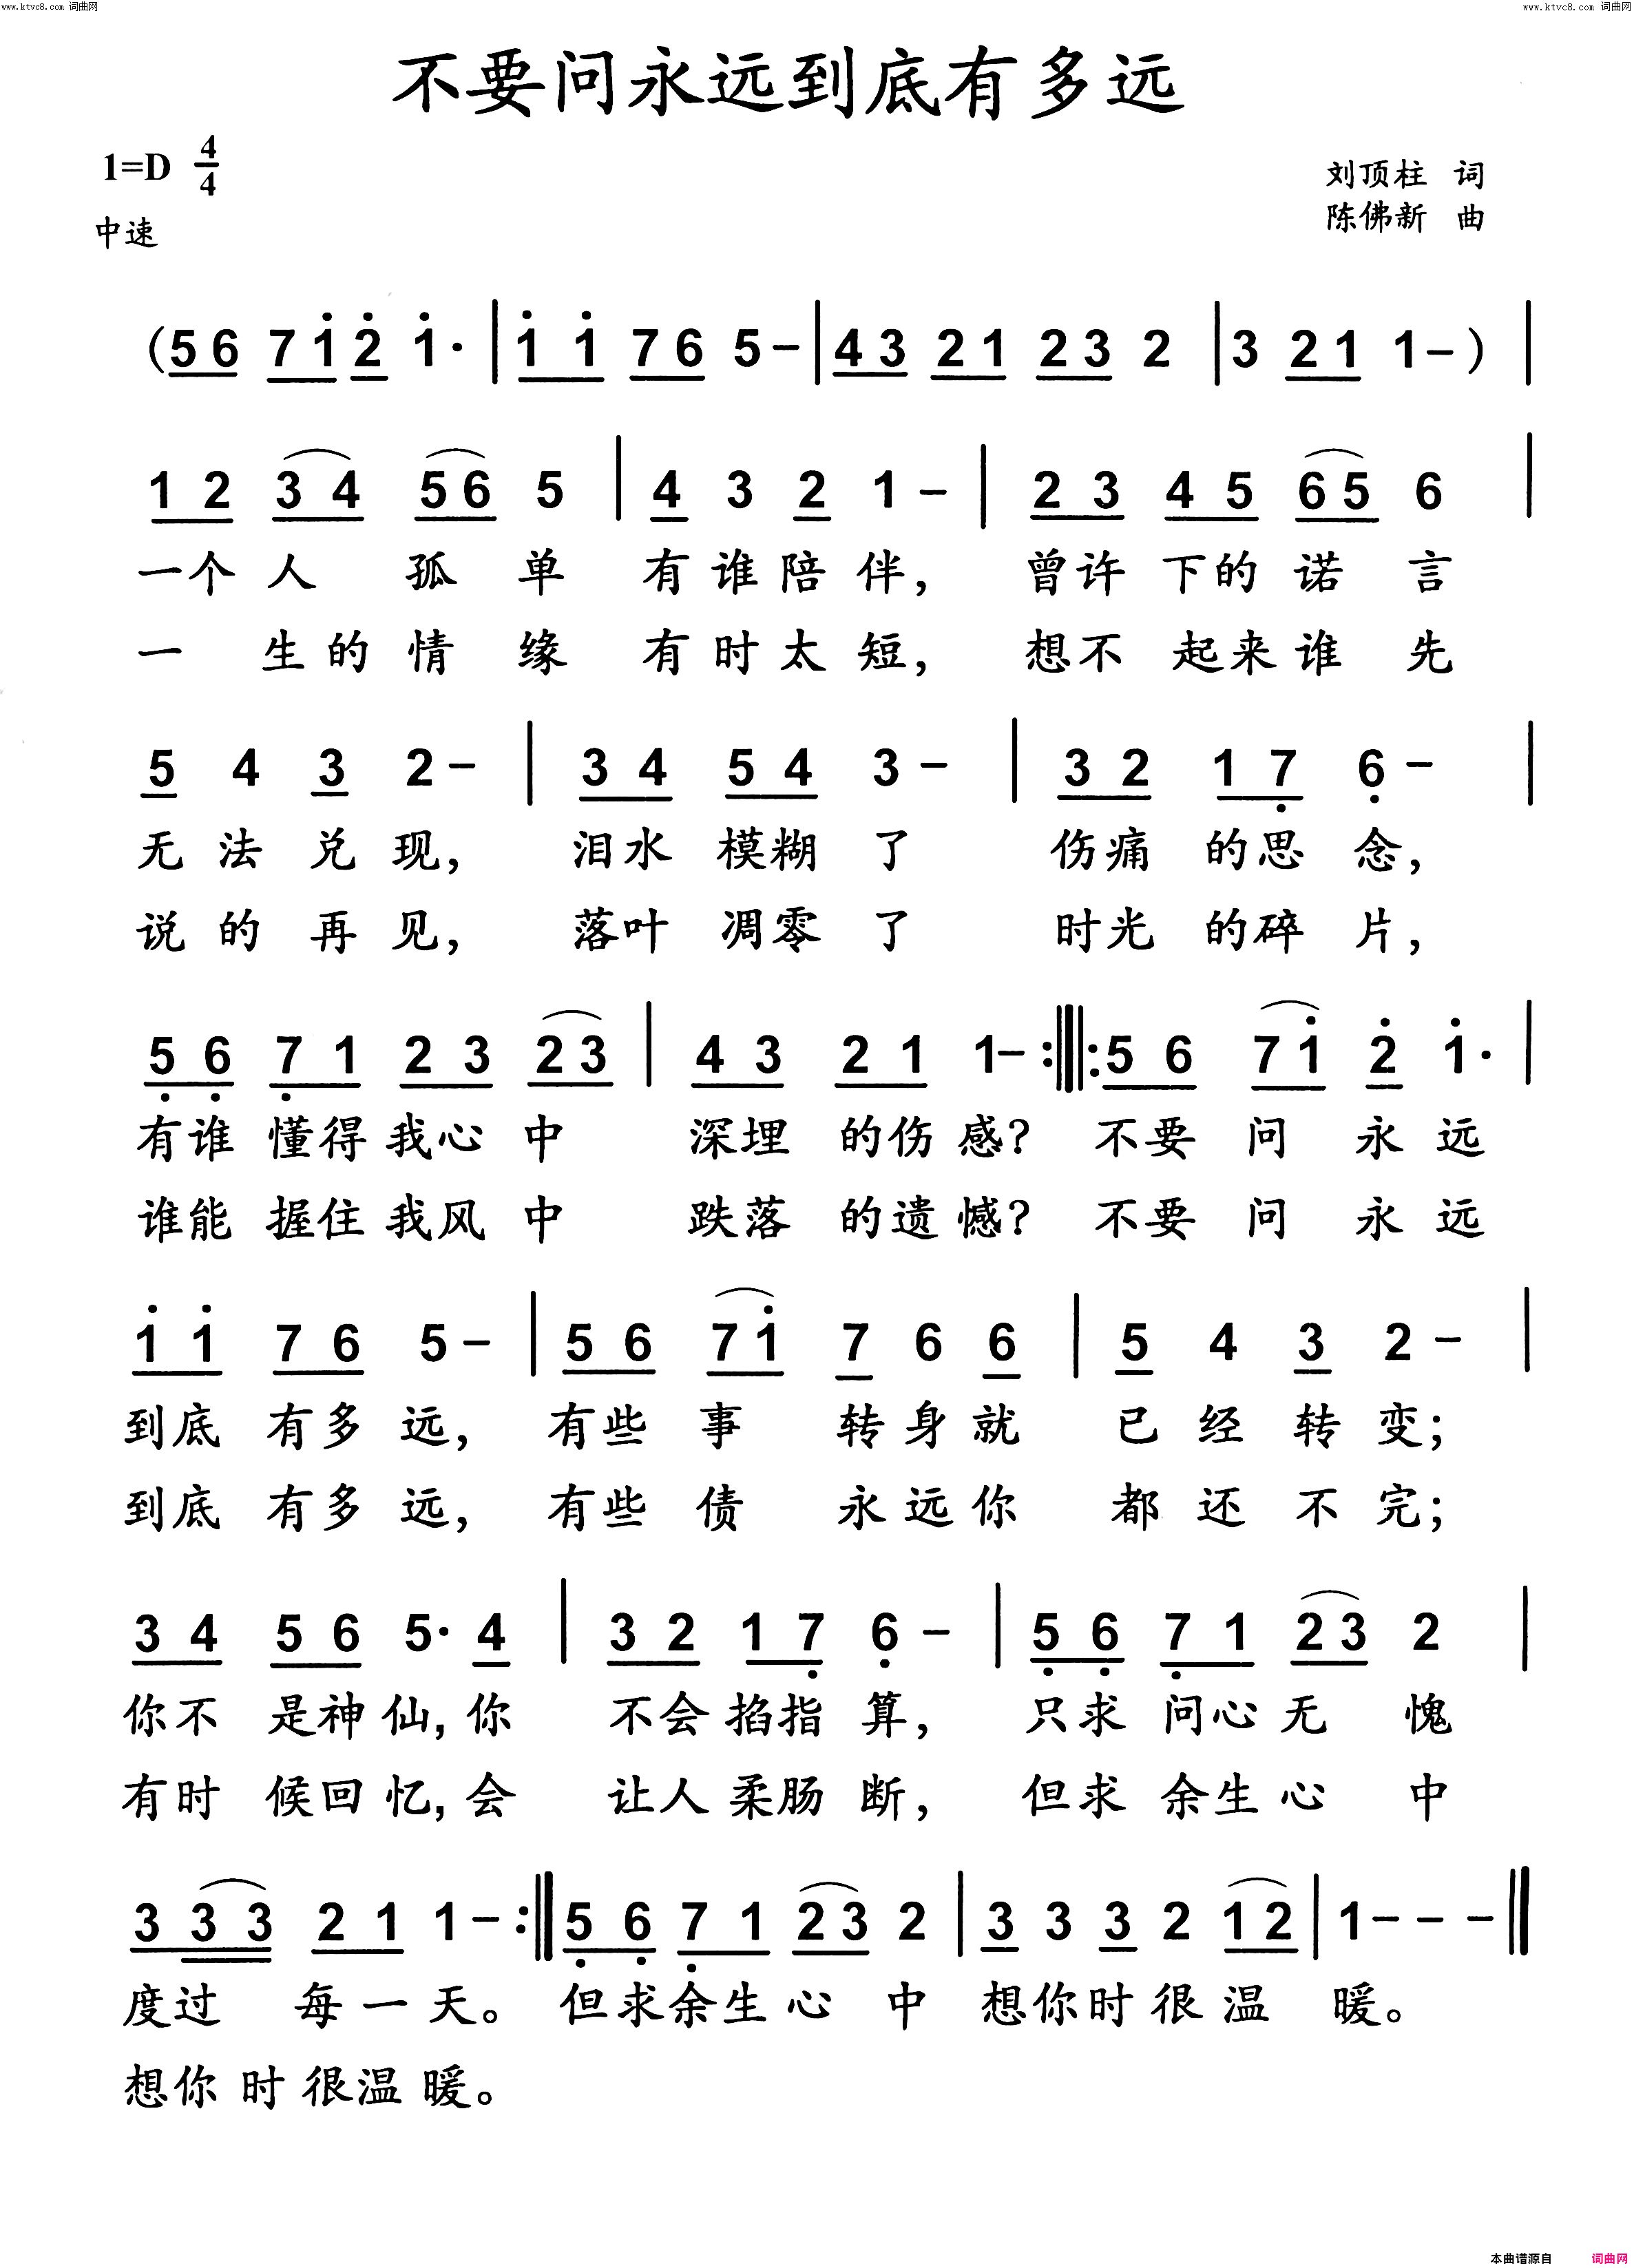 www.ktvc8.com 词曲网 www.ktvc8.com 词曲网
不要问永远到底有多远
1=D 4/4
刘顶柱 词
中速
陈佛新 曲
(56 71̇2̇ 1̇· | 1̇1̇ 76 5- | 43 21 23 2 | 3 21 1- ) |
12 34 56 5 | 4 3 2 1- | 23 45 65 6 |
一个人 孤 单 有谁陪伴, 曾许下的诺 言
一 生的情 缘 有时太短, 想不起来谁 先
5 4 3 2- | 34 54 3- | 32 17̣ 6̣- |
无法兑现, 泪水模糊了 伤痛的思念,
说的再见, 落叶凋零了 时光的碎片,
5̣6̣ 7̣1 23 23 | 43 21 1- :||: 56 71̇ 2̇ 1̇· |
有谁懂得我心中 深埋的伤感? 不要问 永远
谁能握住我风中 跌落的遗憾? 不要问 永远
1̇1̇ 76 5- | 56 71̇ 7 6 6 | 5 4 3 2- |
到底有多远, 有些事 转身就 已经转变;
到底有多远, 有些债 永远你 都还不完;
34 56 5· 4 | 32 17̣ 6̣- | 5̣6̣ 7̣1 23 2 |
你不是神仙,你 不会掐指算, 只求问心无 愧
有时候回忆,会 让人柔肠断, 但求余生心 中
3 33 21 1- :|| 5̣6̣ 7̣1 23 2 | 3 3 3 2 12 | 1- - - ||
度过 每一天。 但求余生心 中 想你时很温 暖。
想你时很温暖。
本曲谱源自 词曲网